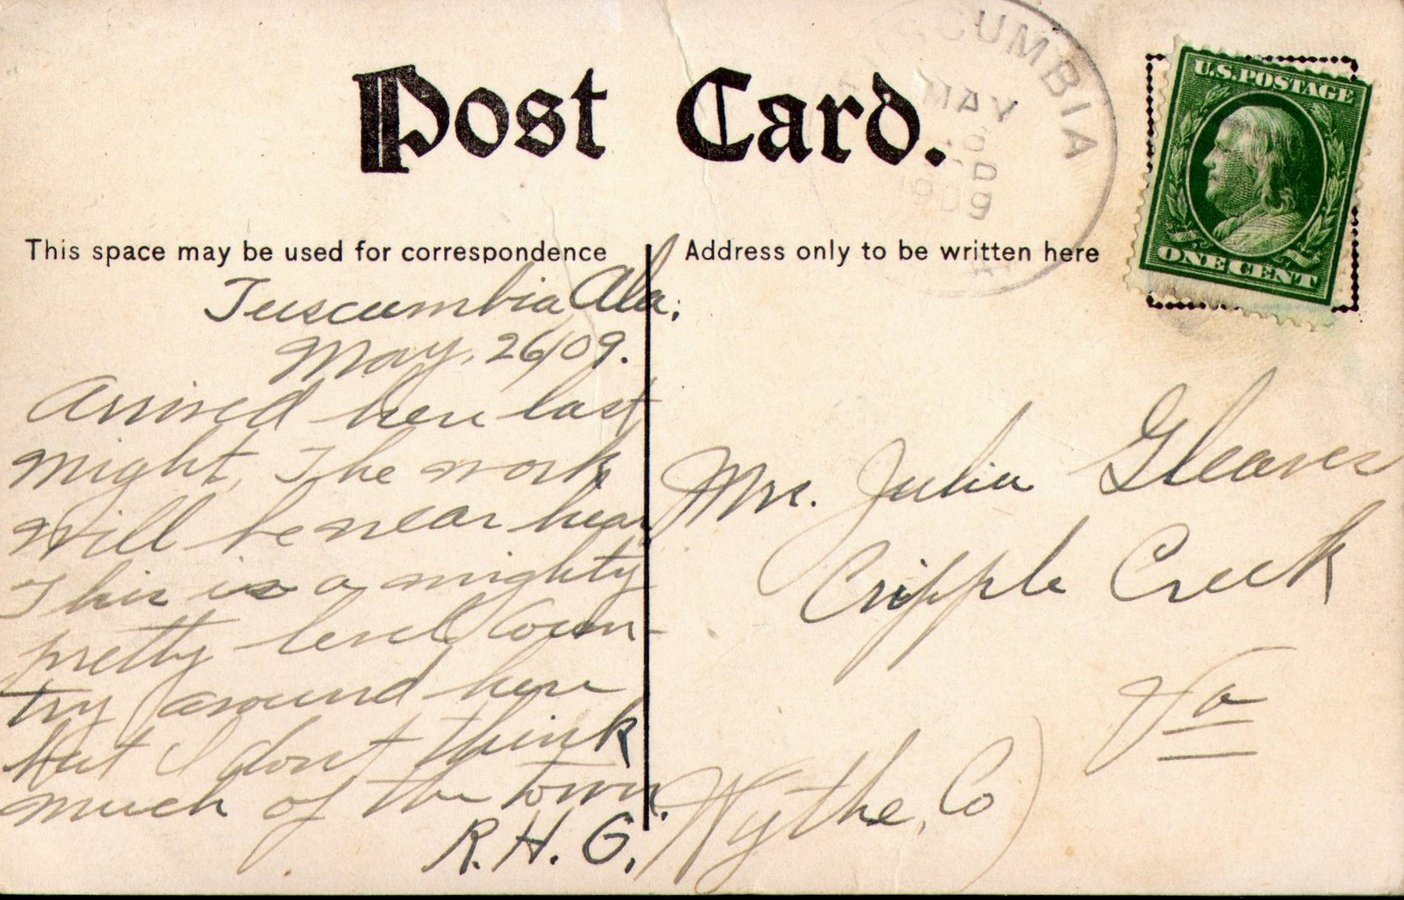 Post Card.
TUSCUMBIA
MAY
1909
U.S. POSTAGE
ONE CENT
This space may be used for correspondence
Address only to be written here
Tuscumbia Ala;
May, 26/09.
Arrived here last
night, The work
will be near here
This is a mighty
pretty level Coun-
try around here
but I dont think
much of the town.
R. H. G.
Mrs. Julia Gleaves
Cripple Creek
Va
Wythe, Co)